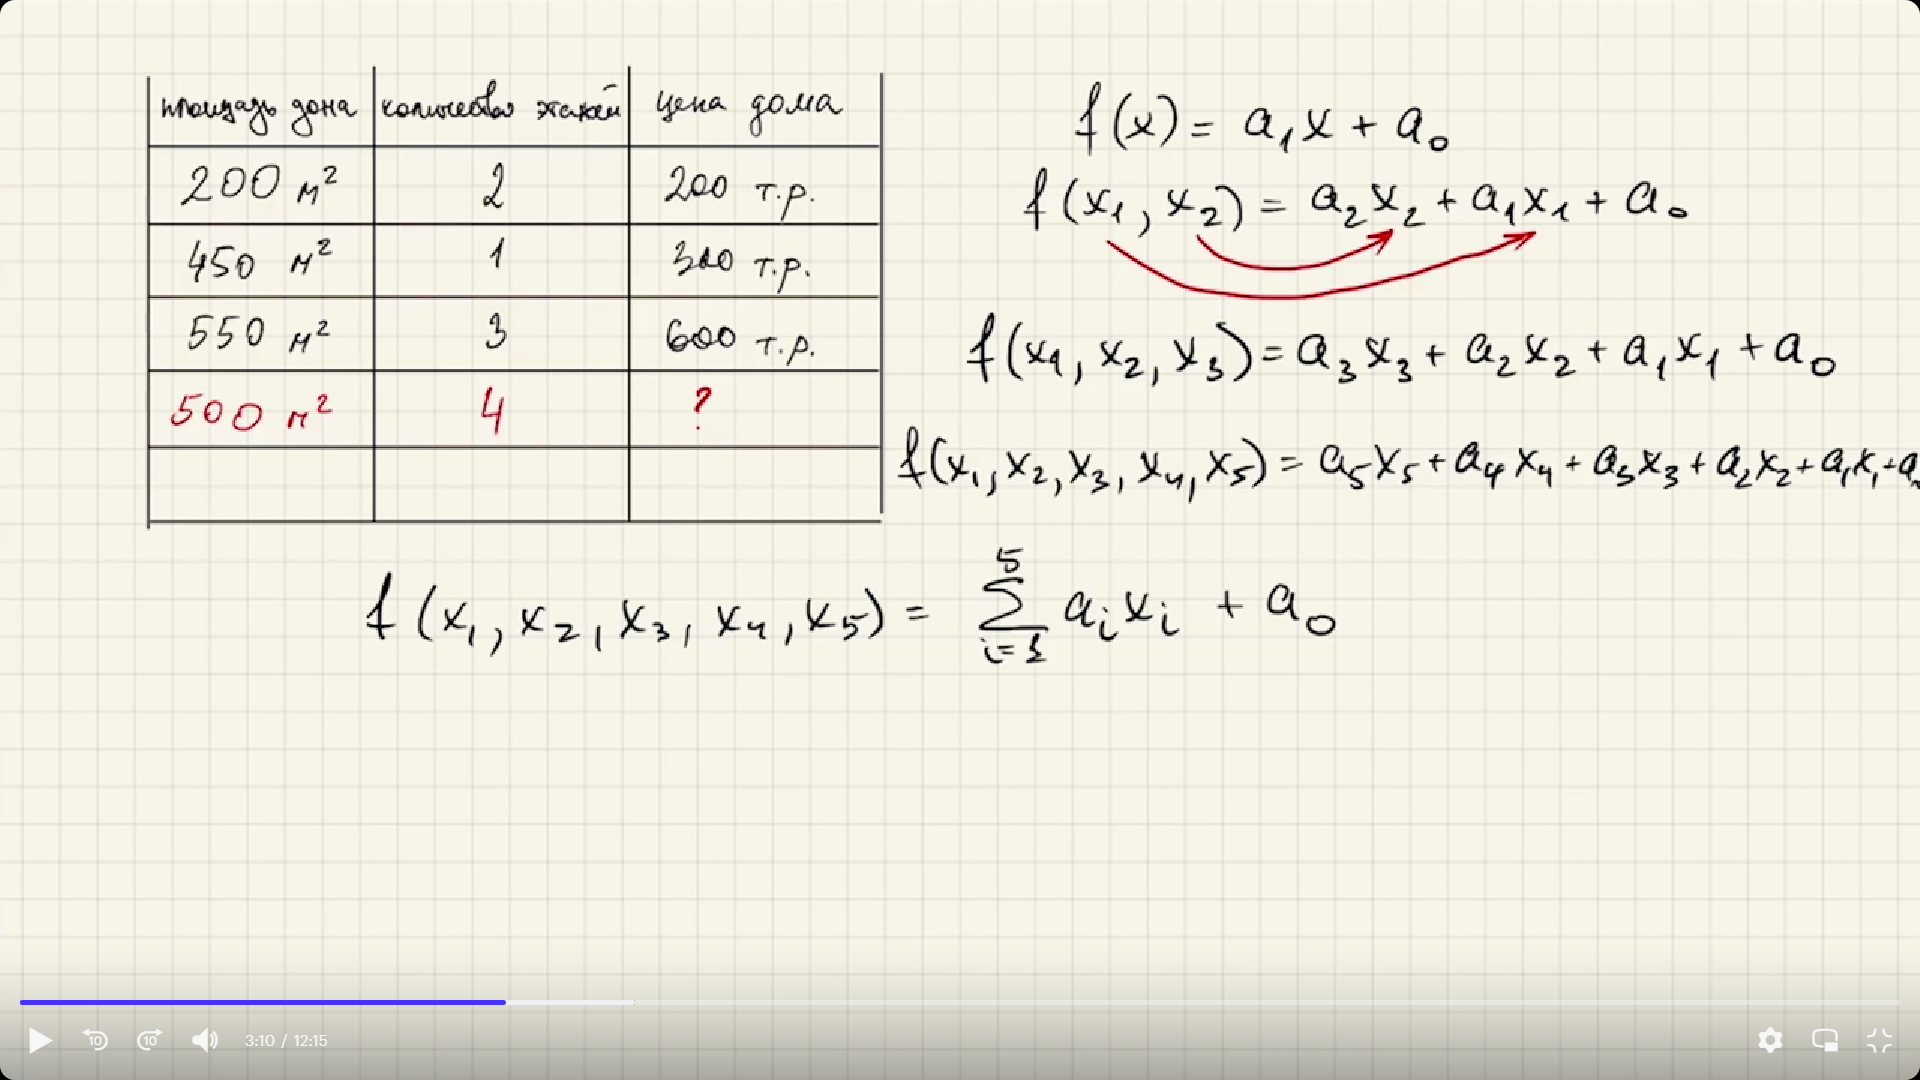 площадь дома количество этажей цена дома
200 м² 2 200 т.р.
450 м² 1 300 т.р.
550 м² 3 600 т.р.
500 м² 4 ?
f(x) = a₁x + a₀
f(x₁, x₂) = a₂x₂ + a₁x₁ + a₀
f(x₁, x₂, x₃) = a₃x₃ + a₂x₂ + a₁x₁ + a₀
f(x₁, x₂, x₃, x₄, x₅) = a₅x₅ + a₄x₄ + a₃x₃ + a₂x₂ + a₁x₁ + a₀
f(x₁, x₂, x₃, x₄, x₅) = 5 ∑ i=1 aᵢxᵢ + a₀
10 10 3:10 / 12:15